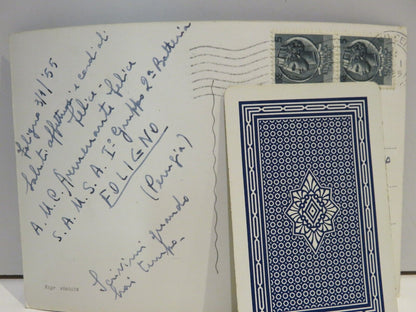 Foligno 3/1/55
Saluti affettuosi e cordiali
felice
A.U.C. Avvenente felice
S.A.U.S.A. I° Gruppo 2ª Batteria
FOLIGNO
(Perugia)
Scrivimi quando
hai tempo.